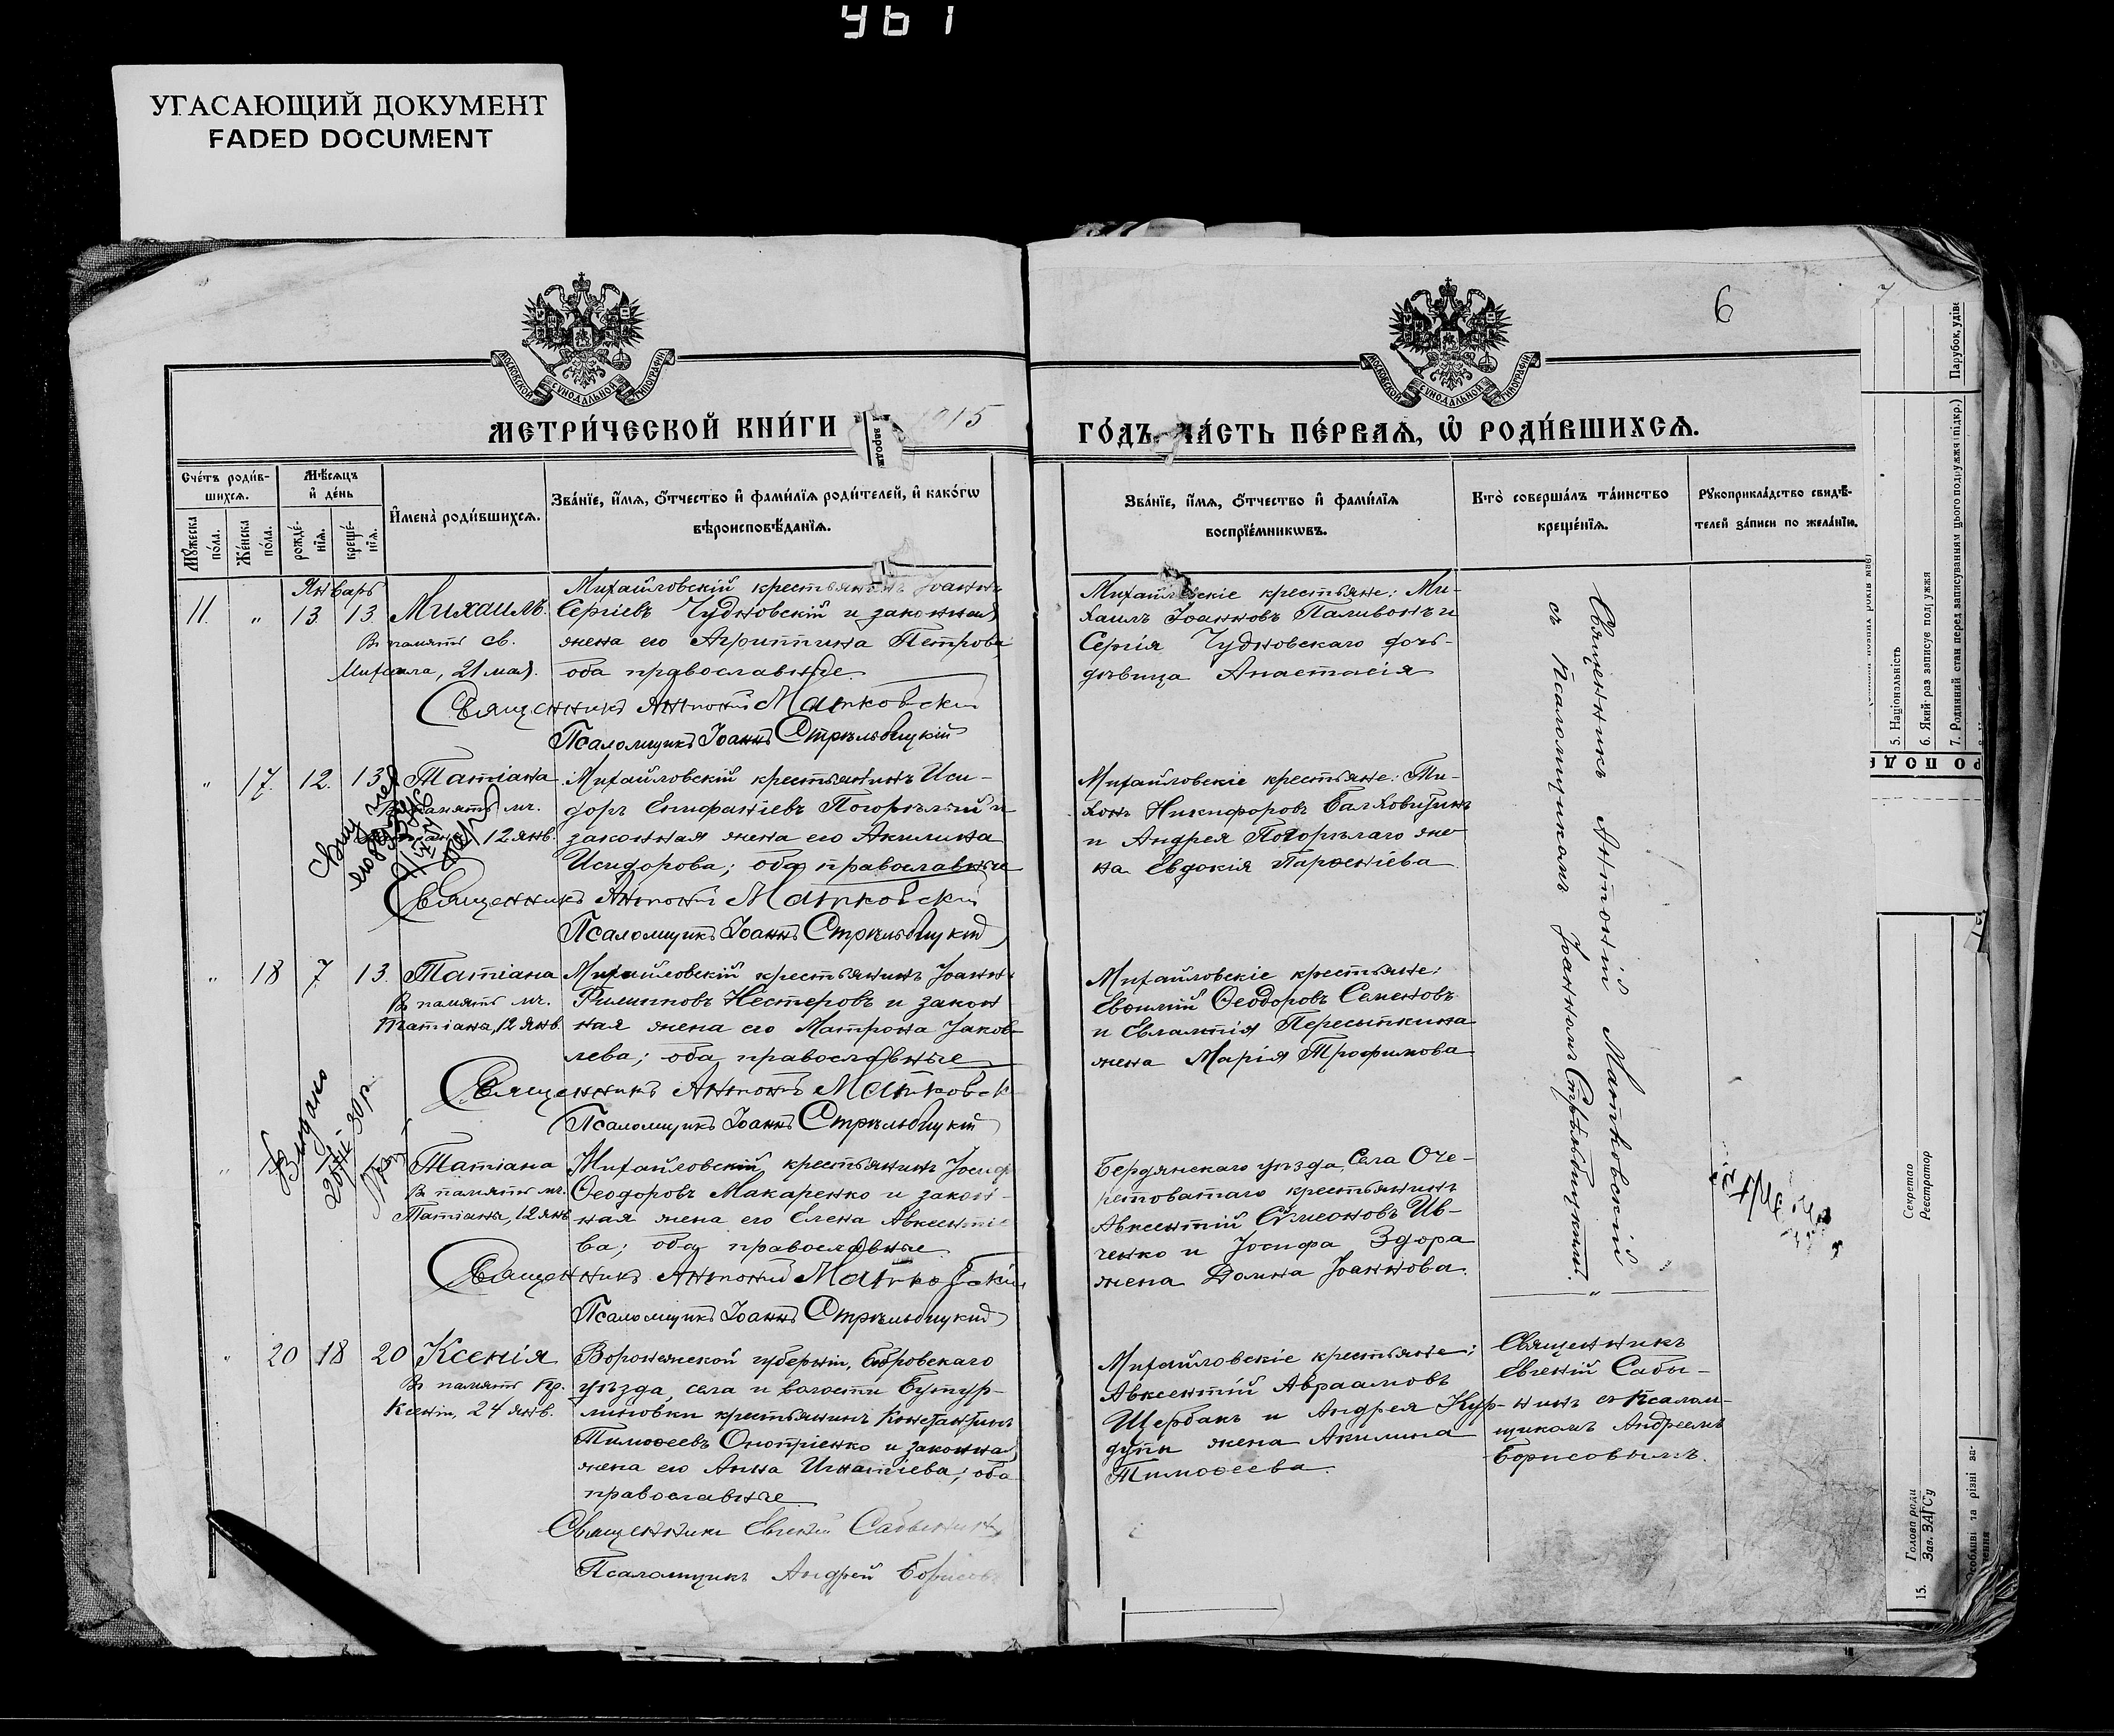 461
УГАСАЮЩИЙ ДОКУМЕНТ
FADED DOCUMENT
6
7
МОСКОВСКОЙ СУНОДАЛЬНОЙ ТИПОГРАФІИ
МОСКОВСКОЙ СУНОДАЛЬНОЙ ТИПОГРАФІИ
МЕТРИ́ЧЕСКОЙ КНИ́ГИ
915
ГО́ДЪ, ЧА́СТЬ ПЕ́РВАѦ, Ѡ҆ РОДИ́ВШИХСѦ.
Сче́тъ роди́в-
шихсѧ.
Мѣ́сѧцъ
и҆ де́нь
Мꙋ́жеска
по́ла.
Же́нска
по́ла.
рожде́-
нїѧ.
креще́-
нїѧ.
И҆мена̀ роди́вшихсѧ.
Зва́нїе, и҆́мѧ, ѻ҆́тчество и҆ фами́лїѧ роди́телей, и҆ како́гѡ
вѣроисповѣ́данїѧ.
Зва́нїе, и҆́мѧ, ѻ҆́тчество и҆ фами́лїѧ
воспрїе́мникѡвъ.
Кто̀ соверша́лъ та́инство
креще́нїѧ.
Рꙋкоприкла́дство свидѣ́-
телей за́писи по жела́нїю.
Январь
11. " 13 13 Михаилъ.
Въ память св.
Михаила, 21 мая.
Михайловскій крестьянинъ Іоаннъ
Сергіевъ Чудновскій и законная
жена его Агриппина Петрова
оба православные
Священникъ Антоній Матковскій
Псаломщикъ Іоаннъ Стрѣльбицкій
Михайловскіе крестьяне: Ми-
хаилъ Іоанновъ Паливонъ и
Сергія Чудновскаго дочь-
дѣвица Анастасія
" 17. 12. 13 Татіана
память мч.
12 янв.
Михайловскій крестьянинъ Иси-
доръ Епифаніевъ Погорѣлый и
законная жена его Акилина
Исидорова; оба православные
Священникъ Антоній Матковскій
Псаломщикъ Іоаннъ Стрѣльбицкій
Михайловскіе крестьяне: Ти-
хонъ Никифоровъ
и Андрея Погорѣлаго же-
на Евдокія Парѳеніева
" 18 7 13. Татіана
Въ память мч.
Татіана, 12 янв.
Михайловскій крестьянинъ Іоаннъ
Филипповъ Нестеровъ и закон
ная жена его Матрона Іаков-
лева; оба православные
Священникъ Антоній Матковскій
Псаломщикъ Іоаннъ Стрѣльбицкій
Михайловскіе крестьяне:
Евѳимій Ѳеодоровъ Семеновъ
и Евлампія Пересыпкина
жена Марія Трофимова
Видано
30 р.
" Татіана
Въ память мч.
Татіаны, 12 янв
Михайловскій крестьянинъ Іосифъ
Ѳеодоровъ Макаренко и закон-
ная жена его Елена Авксентіе
ва; оба православные.
Священникъ Антоній Матковскій
Псаломщикъ Іоаннъ Стрѣльбицкій
Бердянскаго уѣзда, села Оче-
ретоватаго крестьянинъ
Авксентій Сѵмеоновъ Ив-
ченко и Іосифа Здора
жена Домна Іоаннова.
Священникъ Антоній Матковскій
съ Псаломщикомъ Іоанномъ Стрѣльбицкимъ.
" 20 18 20 Ксенія
Въ память пр.
Ксеніи, 24 янв.
Воронежской губерніи, Бобровскаго
уѣзда, села и волости Бутур-
линовки крестьянинъ Константинъ
Тимоѳеевъ Оноприенко и законная
жена его Анна Игнатіева; оба
православные
Священникъ Евгеній Сабынинъ
Псаломщикъ Андрей Борисовъ
Михайловскіе крестьяне:
Авксентій Авраамовъ
Щербакъ и Андрея Кур-
дупи жена Акилина
Тимоѳеева.
Священникъ
Евгеній Сабы-
нинъ съ Псалом-
щикомъ Андреемъ
Борисовымъ.
5. Національність
6. Який раз записує подружжя
7. Родинний стан перед записуванням цього подружжя (підкр.)
Парубок, удів
Секретар
Реєстратор
15.
Голова ради
Зав. ЗАГСу